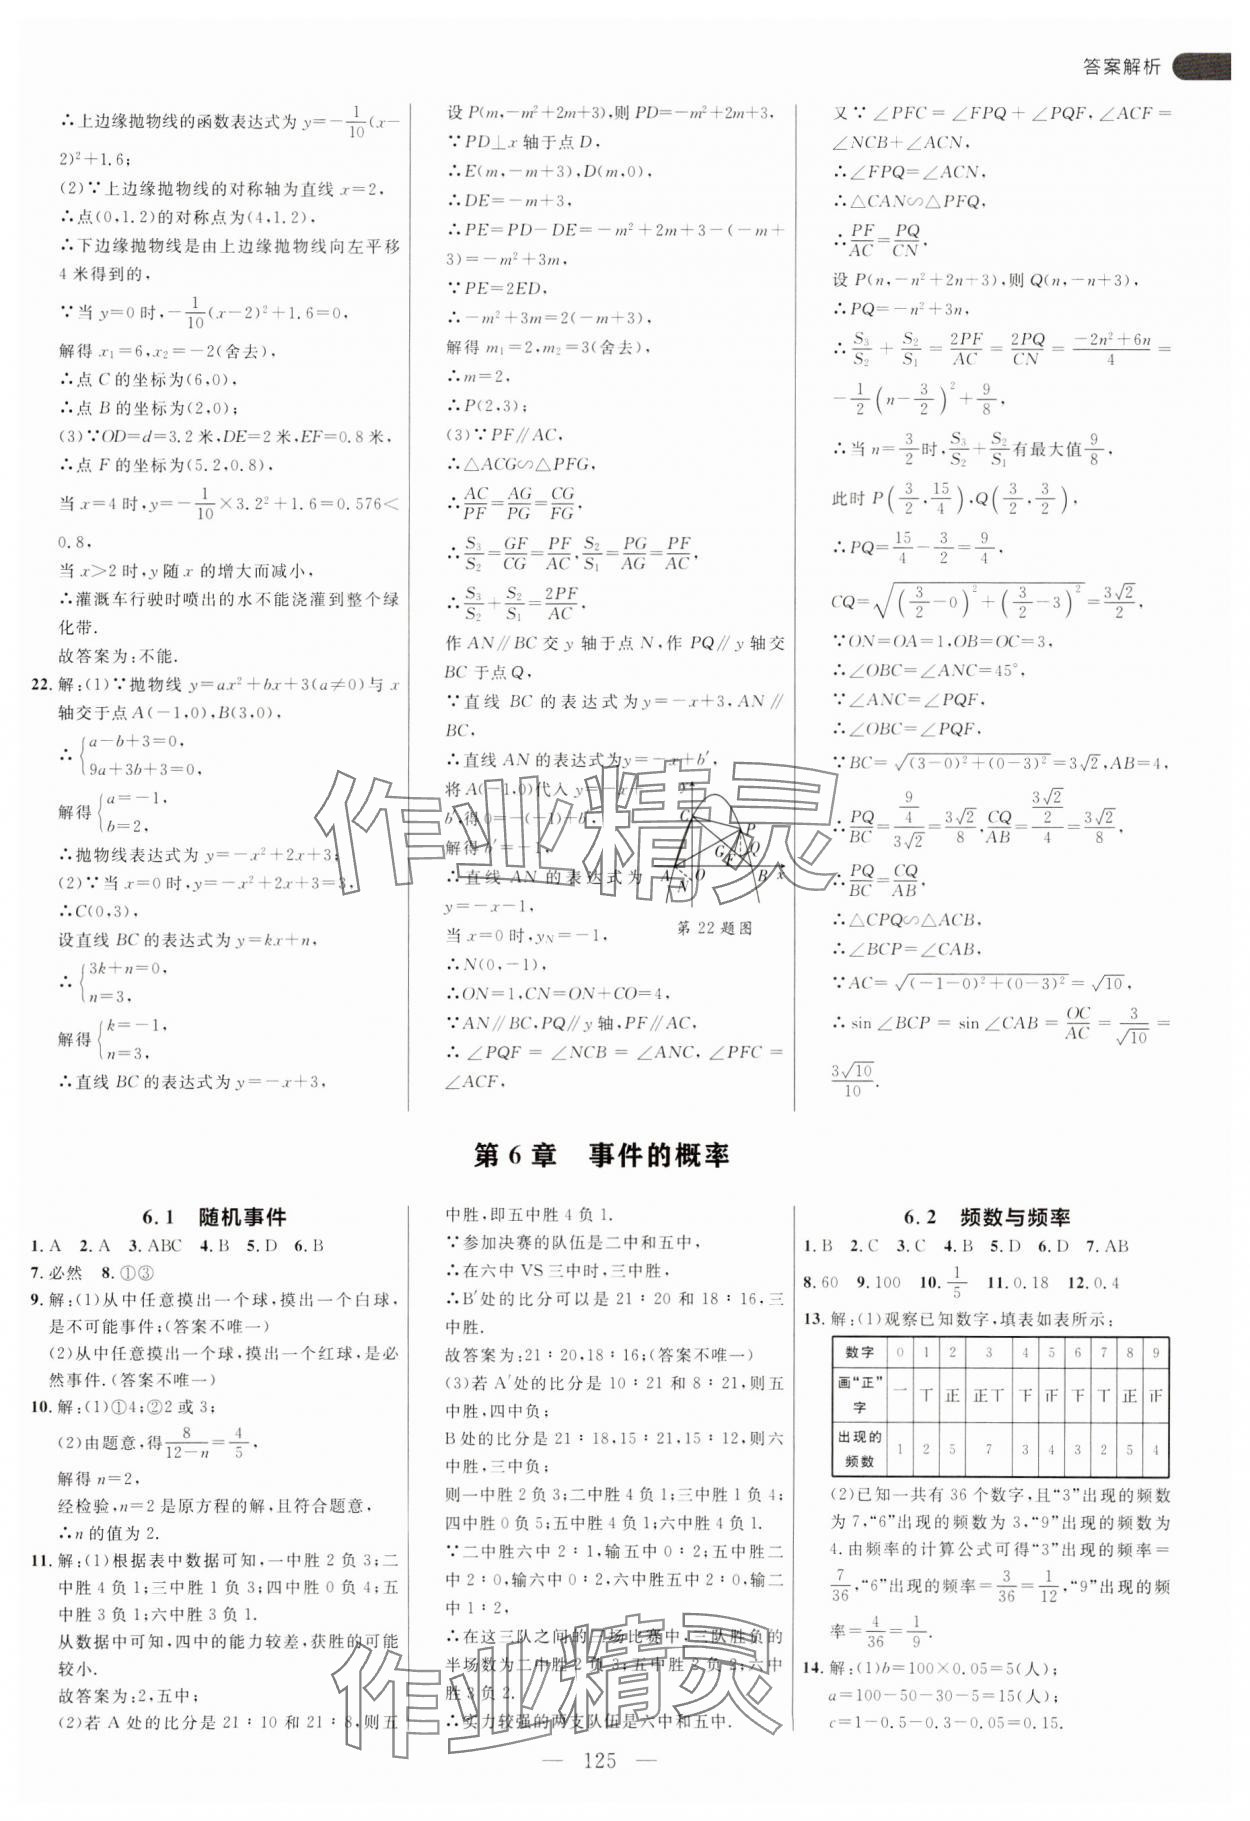 答案解析
∴上边缘抛物线的函数表达式为 y=-1/10(x-
2)²+1.6;
(2)∵上边缘抛物线的对称轴为直线 x=2,
∴点(0,1.2)的对称点为(4,1.2),
∴下边缘抛物线是由上边缘抛物线向左平移
4 米得到的,
∵当 y=0 时,-1/10(x-2)²+1.6=0,
解得 x₁=6,x₂=-2(舍去),
∴点 C 的坐标为(6,0),
∴点 B 的坐标为(2,0);
(3)∵OD=d=3.2 米,DE=2 米,EF=0.8 米,
∴点 F 的坐标为(5.2,0.8),
当 x=4 时,y=-1/10×3.2²+1.6=0.576<
0.8,
当 x>2 时,y 随 x 的增大而减小,
∴灌溉车行驶时喷出的水不能浇灌到整个绿
化带.
故答案为:不能.
22. 解:(1)∵抛物线 y=ax²+bx+3(a≠0)与 x
轴交于点 A(-1,0),B(3,0),
∴{a-b+3=0,
9a+3b+3=0,
解得{a=-1,
b=2,
∴抛物线表达式为 y=-x²+2x+3;
(2)∵当 x=0 时,y=-x²+2x+3=3,
∴C(0,3),
设直线 BC 的表达式为 y=kx+n,
∴{3k+n=0,
n=3,
解得{k=-1,
n=3,
∴直线 BC 的表达式为 y=-x+3,
设 P(m,-m²+2m+3),则 PD=-m²+2m+3,
∵PD⊥x 轴于点 D,
∴E(m,-m+3),D(m,0),
∴DE=-m+3,
∴PE=PD-DE=-m²+2m+3-(-m+
3)=-m²+3m,
∵PE=2ED,
∴-m²+3m=2(-m+3),
解得 m₁=2,m₂=3(舍去),
∴m=2,
∴P(2,3);
(3)∵PF∥AC,
∴△ACG∽△PFG,
∴AC/PF=AG/PG=CG/FG,
∴S₃/S₂=GF/CG=PF/AC,S₂/S₁=PG/AG=PF/AC,
∴S₃/S₂+S₂/S₁=2PF/AC,
作 AN∥BC 交 y 轴于点 N,作 PQ∥y 轴交
BC 于点 Q,
∵直线 BC 的表达式为y=-x+3,AN∥
BC,
∴直线 AN 的表达式为y=-x+b′,
将 A(-1,0)代入 y=-x+
b′,得 0=-(-1)+b′,
解得 b′=-1,
∴直线 AN 的表达式为
y=-x-1,
y
C
P
G
F
Q
A
O
B
x
N
第 22 题图
当 x=0 时,y_N=-1,
∴N(0,-1),
∴ON=1,CN=ON+CO=4,
∵AN∥BC,PQ∥y 轴,PF∥AC,
∴∠PQF=∠NCB=∠ANC,∠PFC=
∠ACF,
又∵∠PFC=∠FPQ+∠PQF,∠ACF=
∠NCB+∠ACN,
∴∠FPQ=∠ACN,
∴△CAN∽△PFQ,
∴PF/AC=PQ/CN,
设 P(n,-n²+2n+3),则 Q(n,-n+3),
∴PQ=-n²+3n,
∴S₃/S₂+S₂/S₁=2PF/AC=2PQ/CN=(-2n²+6n)/4=
-1/2(n-3/2)²+9/8,
∴当 n=3/2时,S₃/S₂+S₂/S₁有最大值9/8,
此时 P(3/2,15/4),Q(3/2,3/2),
∴PQ=15/4-3/2=9/4,
CQ=√((3/2-0)²+(3/2-3)²)=3√2/2,
∵ON=OA=1,OB=OC=3,
∴∠OBC=∠ANC=45°,
∵∠ANC=∠PQF,
∴∠OBC=∠PQF,
∵BC=√((3-0)²+(0-3)²)=3√2,AB=4,
∴PQ/BC=(9/4)/(3√2)=3√2/8,CQ/AB=(3√2/2)/4=3√2/8,
∴PQ/BC=CQ/AB,
∴△CPQ∽△ACB,
∴∠BCP=∠CAB,
∵AC=√((-1-0)²+(0-3)²)=√10,
∴sin∠BCP=sin∠CAB=OC/AC=3/√10=
3√10/10.
第 6 章 事件的概率
6.1 随机事件
1. A 2. A 3. ABC 4. B 5. D 6. B
7. 必然 8. ①③
9. 解:(1)从中任意摸出一个球,摸出一个白球,
是不可能事件;(答案不唯一)
(2)从中任意摸出一个球,摸出一个红球,是必
然事件.(答案不唯一)
10. 解:(1)①4;②2 或 3;
(2)由题意,得8/(12-n)=4/5,
解得 n=2,
经检验,n=2 是原方程的解,且符合题意,
∴n 的值为 2.
11. 解:(1)根据表中数据可知,一中胜 2 负 3;二
中胜 4 负 1;三中胜 1 负 3;四中胜 0 负 4;五
中胜 3 负 1;六中胜 3 负 1.
从数据中可知,四中的能力较差,获胜的可能
较小.
故答案为:2,五中;
(2)若 A 处的比分是 21∶10 和 21∶8,则五
中胜,即五中胜 4 负 1.
∵参加决赛的队伍是二中和五中,
∴在六中 VS 三中时,三中胜,
∴B′处的比分可以是 21∶20 和 18∶16,三
中胜.
故答案为:21∶20,18∶16;(答案不唯一)
(3)若 A′处的比分是 10∶21 和 8∶21,则五
中胜,四中负;
B 处的比分是 21∶18,15∶21,15∶12,则六
中胜,三中负;
则一中胜 2 负 3;二中胜 4 负 1;三中胜 1 负 4;
四中胜 0 负 5;五中胜 4 负 1;六中胜 4 负 1.
∵二中胜六中 2∶1,输五中 0∶2;五中胜二
中 2∶0,输六中 0∶2;六中胜五中 2∶0,输二
中 1∶2,
∴在这三队之间的三场比赛中,三队胜负的
半场数为二中胜 2 负 3,五中胜 2 负 2,六中
胜 3 负 2.
∴实力较强的两支队伍是六中和五中.
6.2 频数与频率
1. B 2. C 3. C 4. B 5. D 6. D 7. AB
8. 60 9. 100 10. 1/5 11. 0.18 12. 0.4
13. 解:(1)观察已知数字,填表如表所示:
数字 0 1 2 3 4 5 6 7 8 9
画“正”
字 一 丅 正 正丅 下 正 下 丅 正
出现的
频数 1 2 5 7 3 4 3 2 5 4
(2)已知一共有 36 个数字,且“3”出现的频数
为 7,“6”出现的频数为 3,“9”出现的频数为
4. 由频率的计算公式可得“3”出现的频率=
7/36,“6”出现的频率=3/36=1/12,“9”出现的频
率=4/36=1/9.
14. 解:(1)b=100×0.05=5(人);
a=100-50-30-5=15(人),
c=1-0.5-0.3-0.05=0.15.
— 125 —
作业精灵
作业精灵